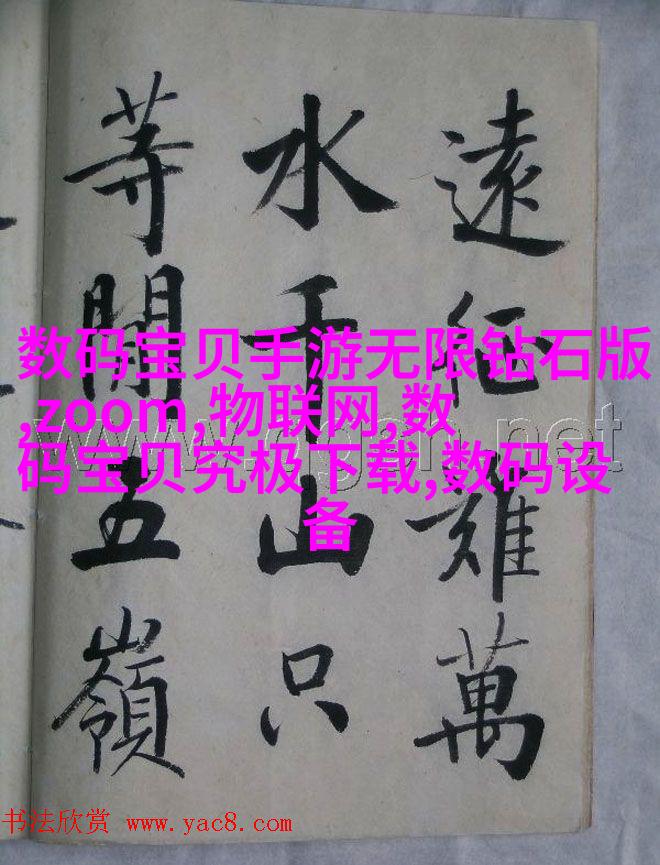 遠征難萬
水千山只
等閒五嶺
数码宝贝手游无限钻石版
,zoom,物联网,数
码宝贝究极下载,数码设
备
书法欣赏 www.yac8.com